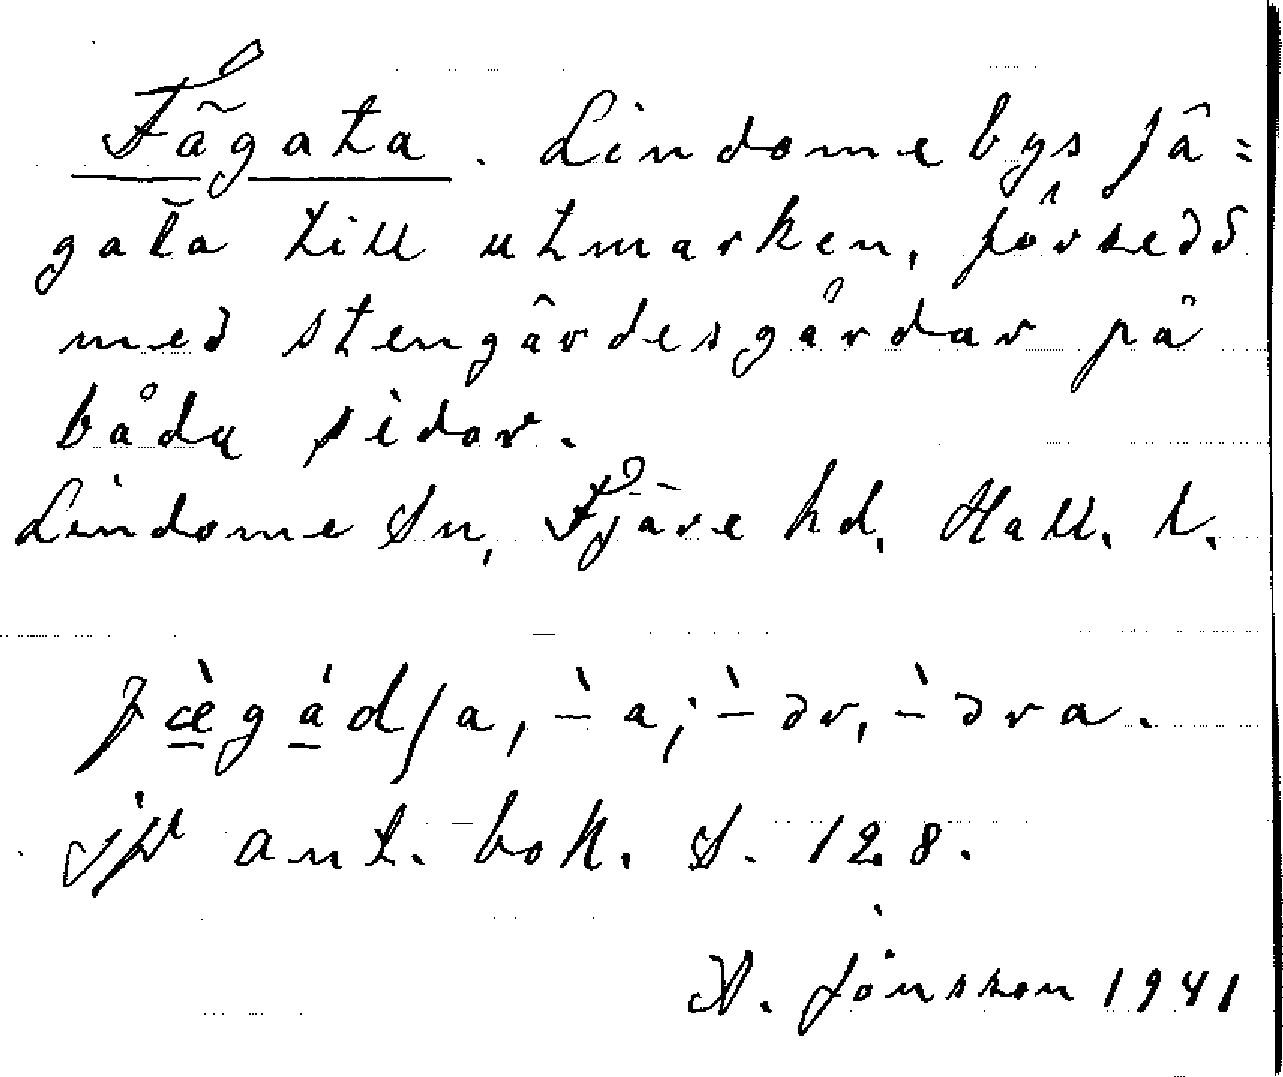 Fägata. Lindome bys fä=
gata till utmarken, försedd
med stengärdesgårdar på
båda sidor.
Lindome Sn, Fjäre hd, Hall. l.
fæ̀gádʃa, -̀a; -̀ər, -̀əra.
ant. bok. S. 128.
A. Jönsson 1941